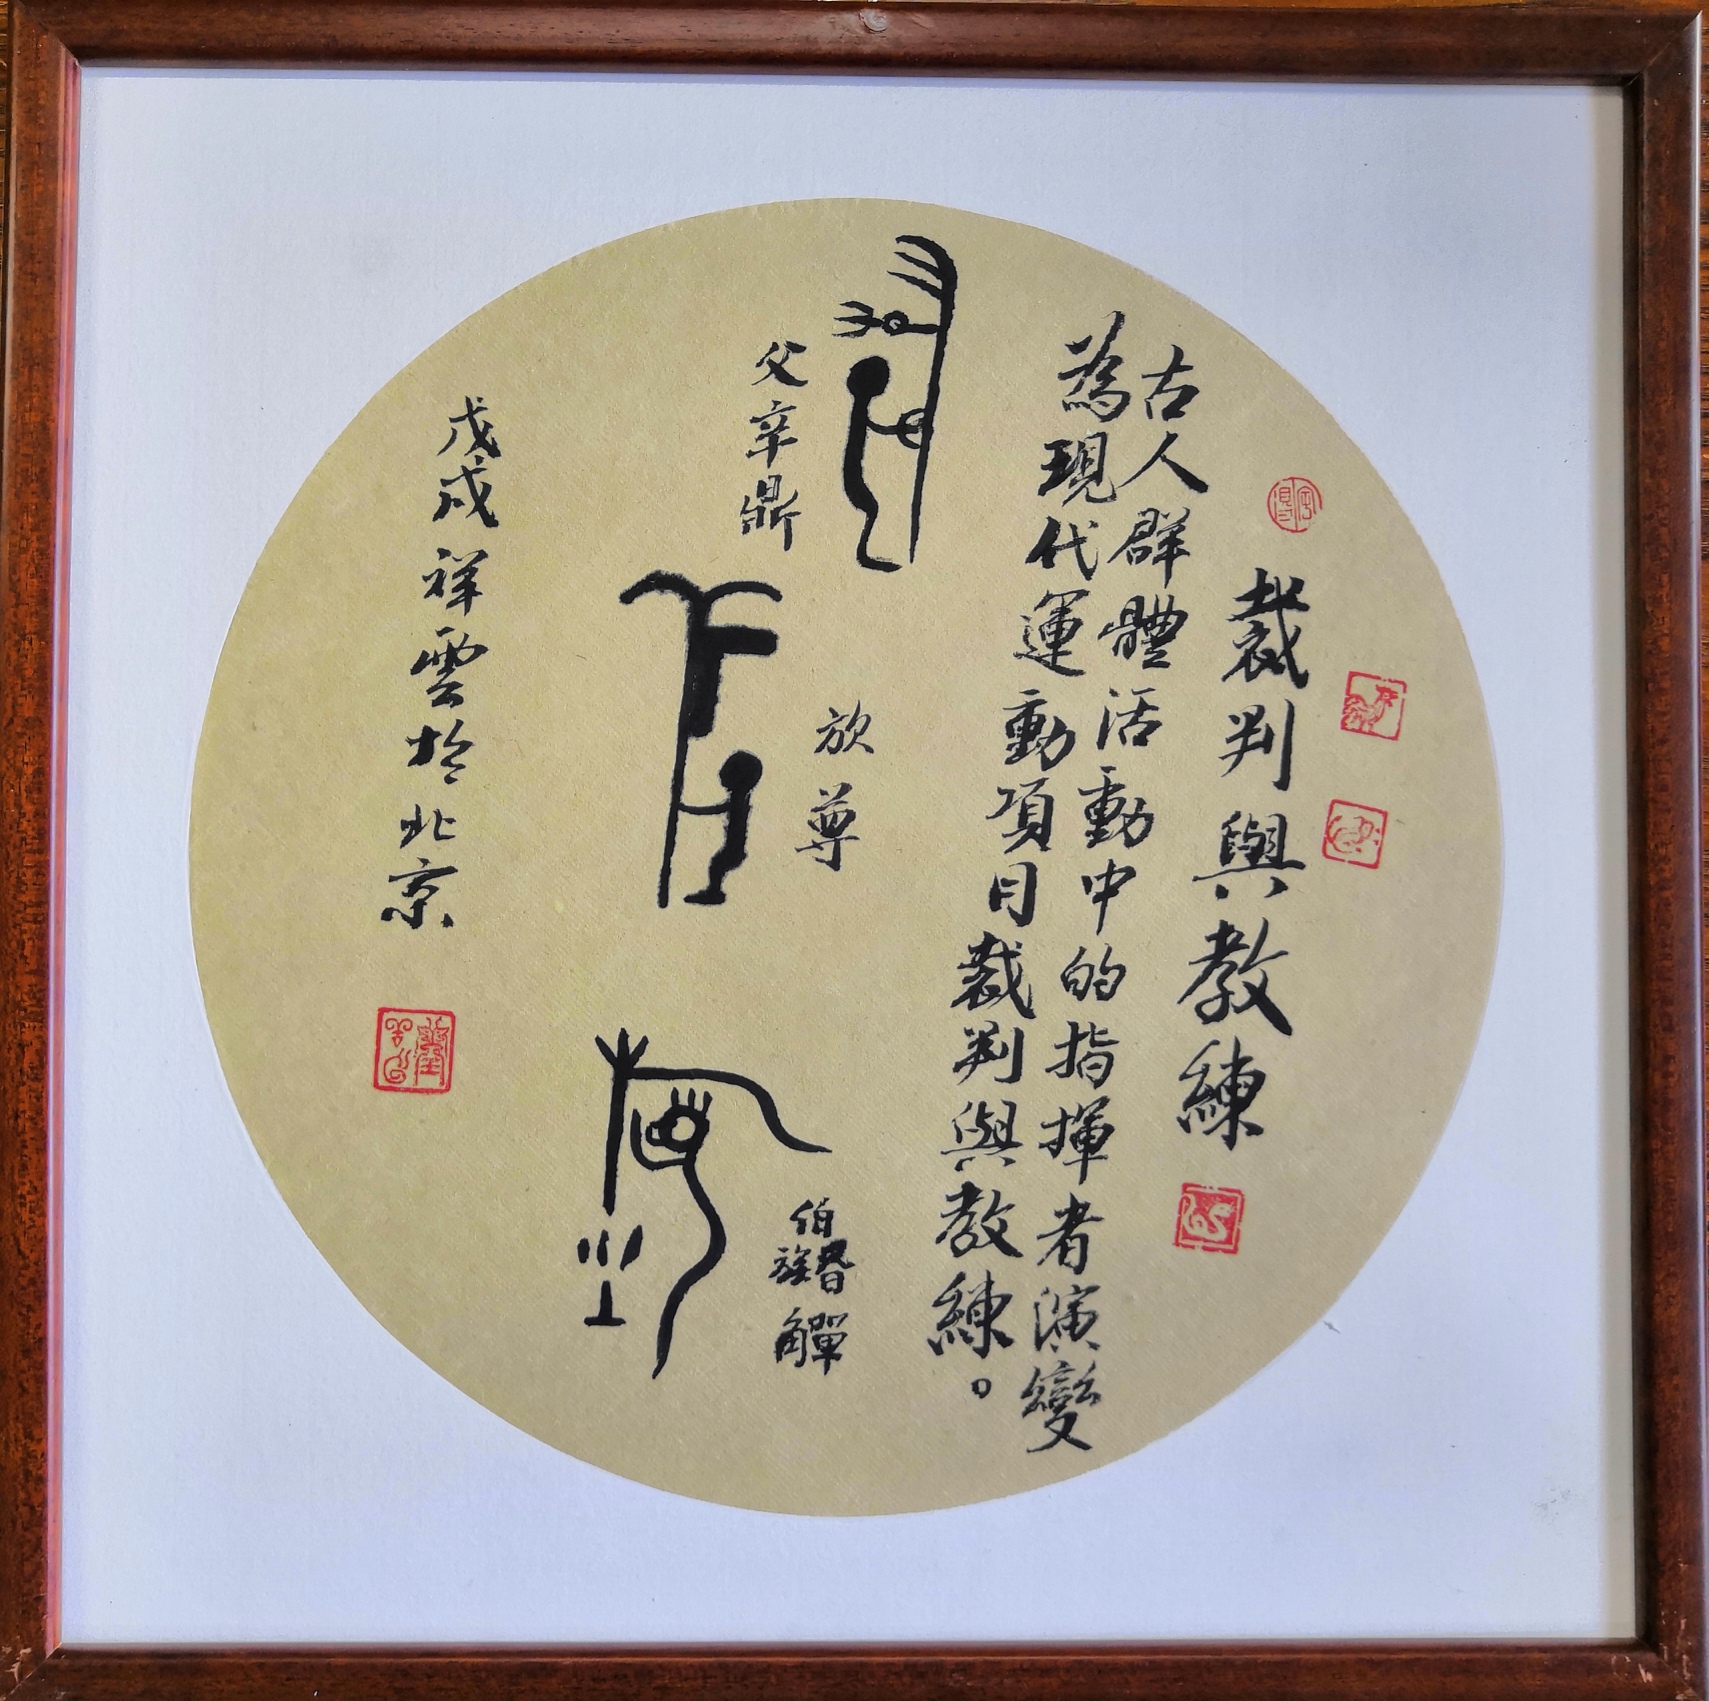 裁判與教練
古人群體活動中的指揮者演變
為現代運動項目裁判與教練。
父辛鼎
放尊
伯
族
觶
戊戌祥雲於北京